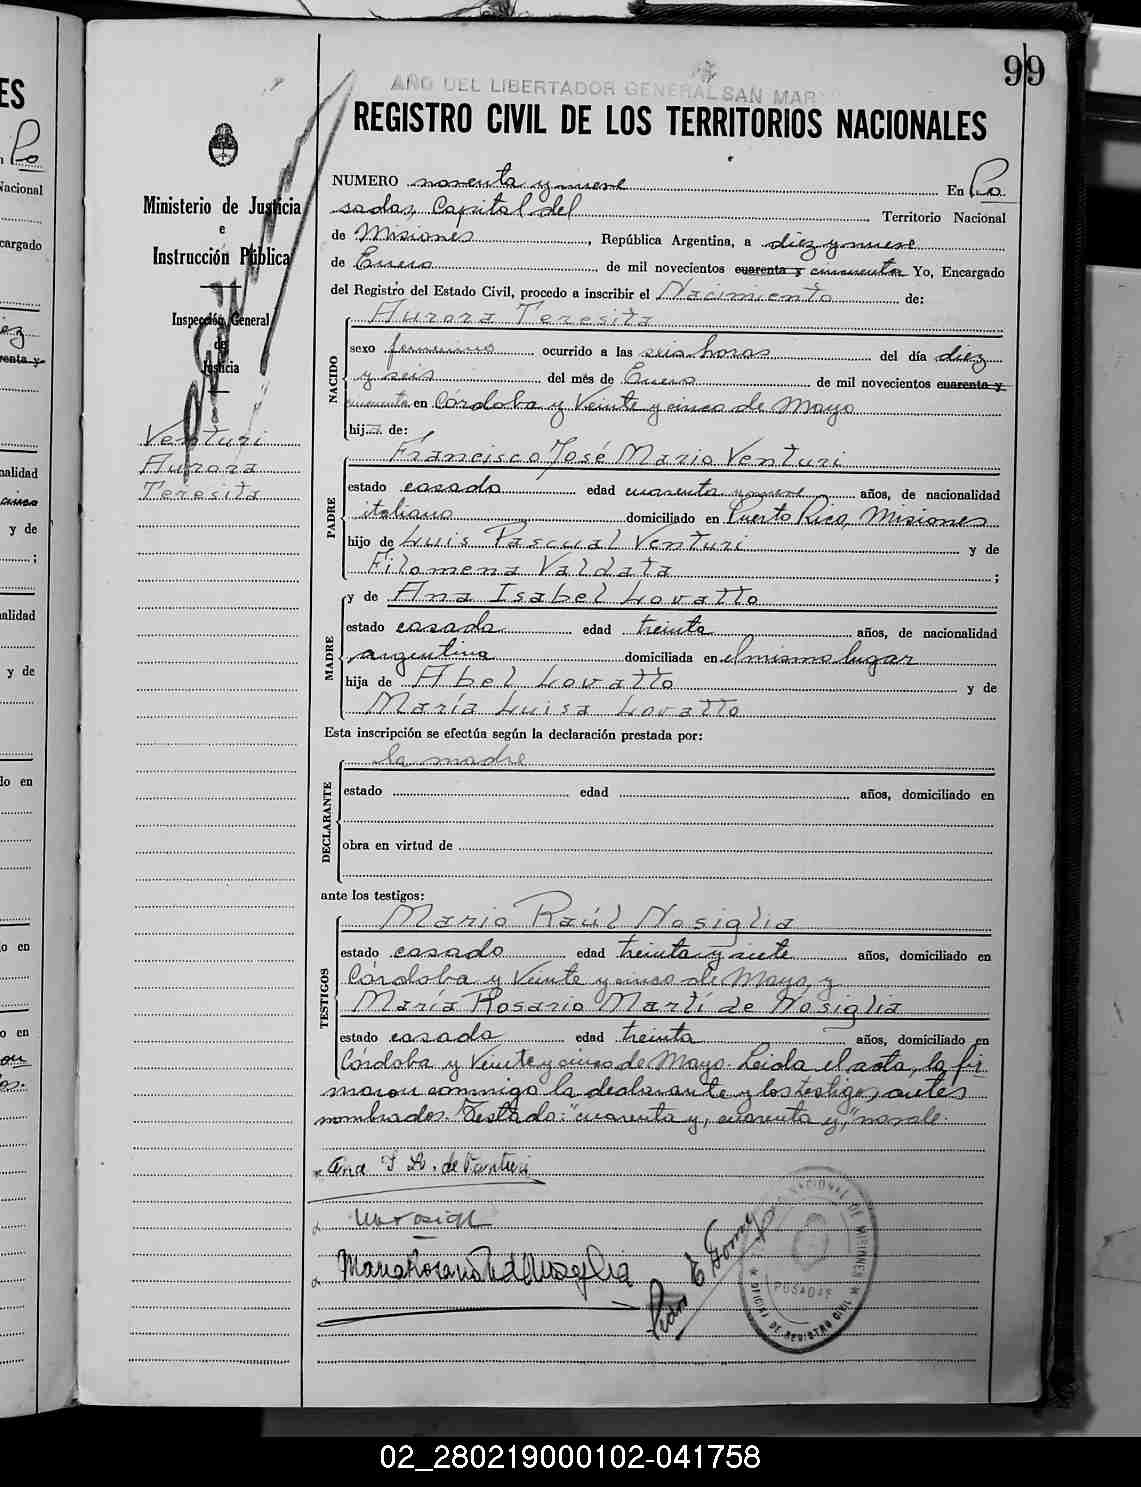 99
AÑO DEL LIBERTADOR GENERAL SAN MAR
REGISTRO CIVIL DE LOS TERRITORIOS NACIONALES
Ministerio de Justicia
e
Instrucción Pública
Inspección General
de
Justicia
Venturi
Aurora
Teresita
NUMERO noventa y nueve En Po
sadas, Capital del Territorio Nacional
de Misiones, República Argentina, a diez y nueve
de Enero de mil novecientos cuarenta y cincuenta Yo, Encargado
del Registro del Estado Civil, procedo a inscribir el Nacimiento de:
NACIDO
Aurora Teresita
sexo femenino ocurrido a las seis horas del día diez
y seis del mes de Enero de mil novecientos cuarenta y
cincuenta en Córdoba y Veinte y cinco de Mayo
hija de:
PADRE
Francisco José Mario Venturi
estado casado edad cuarenta nueve años, de nacionalidad
italiano domiciliado en Puerto Rico, Misiones
hijo de Luis Pascual Venturi y de
Filomena Valdata ;
MADRE
y de Ana Isabel Lovatto
estado casada edad treinta años, de nacionalidad
argentina domiciliada en el mismo lugar
hija de Abel Lovatto y de
María Luisa Lovatto
Esta inscripción se efectúa según la declaración prestada por:
DECLARANTE
la madre
estado edad años, domiciliado en
obra en virtud de
ante los testigos:
TESTIGOS
Mario Raúl Nosiglia
estado casado edad treinta y siete años, domiciliado en
Córdoba y Veinte y cinco de Mayo y
María Rosario Martí de Nosiglia
estado casada edad treinta años, domiciliado en
Córdoba y Veinte y cinco de Mayo. Leida el acta, la fir
maron conmigo la declarante y los testigos antes
nombrados. Testado: "cuarenta y, cuarenta y," no vale.
Ana I L. de Venturi
POSADAS
OFICINA DE REGISTRO CIVIL
02_280219000102-041758